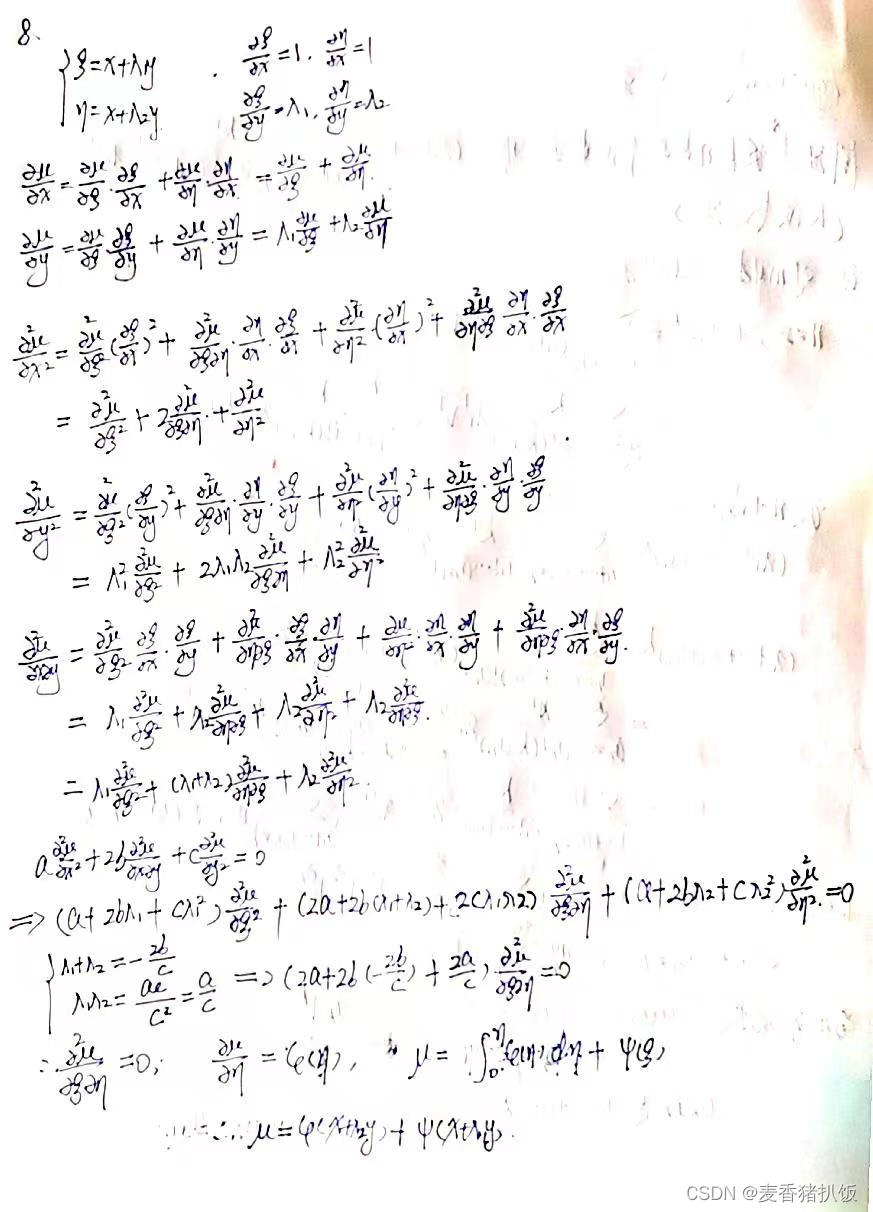 8.
{ξ=x+λ₁y . ∂ξ/∂x=1. ∂η/∂x=1
η=x+λ₂y ∂ξ/∂y=λ₁, ∂η/∂y=λ₂
∂μ/∂x = ∂μ/∂ξ·∂ξ/∂x + ∂μ/∂η·∂η/∂x = ∂μ/∂ξ + ∂μ/∂η.
∂μ/∂y = ∂μ/∂ξ·∂ξ/∂y + ∂μ/∂η·∂η/∂y = λ₁∂μ/∂ξ + λ₂∂μ/∂η
∂²μ/∂x² = ∂²μ/∂ξ²(∂ξ/∂x)² + ∂²μ/∂ξ∂η·∂η/∂x·∂ξ/∂x + ∂²μ/∂η²·(∂η/∂x)² + ∂²μ/∂η∂ξ·∂η/∂x·∂ξ/∂x
= ∂²μ/∂ξ² + 2∂²μ/∂ξ∂η + ∂²μ/∂η²
∂²μ/∂y² = ∂²μ/∂ξ²(∂ξ/∂y)² + ∂²μ/∂ξ∂η·∂η/∂y·∂ξ/∂y + ∂²μ/∂η²(∂η/∂y)² + ∂²μ/∂η∂ξ·∂η/∂y·∂ξ/∂y
= λ₁²∂²μ/∂ξ² + 2λ₁λ₂∂²μ/∂ξ∂η + λ₂²∂²μ/∂η²
∂²μ/∂x∂y = ∂²μ/∂ξ²·∂ξ/∂x·∂ξ/∂y + ∂²μ/∂η∂ξ·∂ξ/∂x·∂η/∂y + ∂²μ/∂η²·∂η/∂x·∂η/∂y + ∂²μ/∂η∂ξ·∂η/∂x·∂ξ/∂y.
= λ₁∂²μ/∂ξ² + λ₂∂²μ/∂η∂ξ + λ₂∂²μ/∂η² + λ₂∂²μ/∂η∂ξ.
= λ₁∂²μ/∂ξ² + (λ₁+λ₂)∂²μ/∂η∂ξ + λ₂∂²μ/∂η².
a∂²μ/∂x² + 2b∂²μ/∂x∂y + c∂²μ/∂y² = 0
⇒ (a+2bλ₁+cλ₁²)∂²μ/∂ξ² + (2a+2b(λ₁+λ₂)+2cλ₁λ₂)∂²μ/∂ξ∂η + (a+2bλ₂+cλ₂²)∂²μ/∂η² = 0
{λ₁+λ₂=-2b/c
λ₁λ₂=ac/c²=a/c ⇒ (2a+2b(-2b/c)+2a/c)∂²μ/∂ξ∂η=0
∴ ∂²μ/∂ξ∂η=0, ∂μ/∂η=φ(η), μ=∫₀^η φ(η)dη+ψ(ξ)
∴ μ=φ(x+λ₂y)+ψ(x+λ₁y).
CSDN @麦香猪扒饭